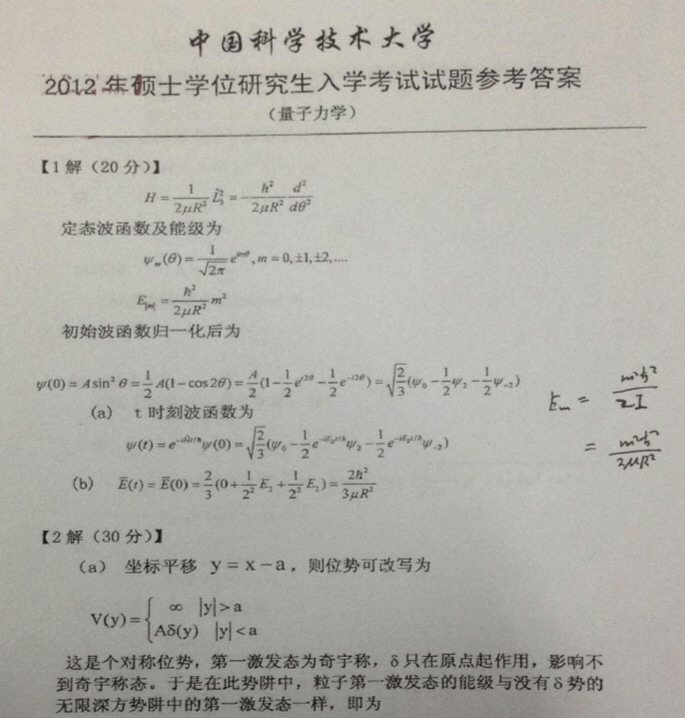 中国科学技术大学
2012年硕士学位研究生入学考试试题参考答案
（量子力学）
【1解（20分）】
H = \frac{1}{2μR²} \hat{L}_3² = -\frac{ħ²}{2μR²} \frac{d²}{dθ²}
定态波函数及能级为
ψ_m(θ) = \frac{1}{\sqrt{2π}} e^{imθ}, m = 0, ±1, ±2, ....
E_{|m|} = \frac{ħ²}{2μR²} m²
初始波函数归一化后为
ψ(0) = A sin² θ = \frac{1}{2} A(1 − cos 2θ) = \frac{A}{2}(1 − \frac{1}{2} e^{i2θ} − \frac{1}{2} e^{−i2θ}) = \sqrt{\frac{2}{3}}(ψ_0 − \frac{1}{2} ψ_2 − \frac{1}{2} ψ_{−2})
E_m = \frac{m²ħ²}{2I}
(a) t时刻波函数为
ψ(t) = e^{−iĤt/ħ} ψ(0) = \sqrt{\frac{2}{3}}(ψ_0 − \frac{1}{2} e^{−iE_2t/ħ} ψ_2 − \frac{1}{2} e^{−iE_2t/ħ} ψ_{−2})
= \frac{m²ħ²}{2μR²}
(b) \bar{E}(t) = \bar{E}(0) = \frac{2}{3}(0 + \frac{1}{2²} E_2 + \frac{1}{2²} E_2) = \frac{2ħ²}{3μR²}
【2解（30分）】
（a） 坐标平移 y = x − a，则位势可改写为
V(y) = { ∞ |y| > a
Aδ(y) |y| < a
这是个对称位势，第一激发态为奇宇称，δ只在原点起作用，影响不
到奇宇称态。于是在此势阱中，粒子第一激发态的能级与没有δ势的
无限深方势阱中的第一激发态一样，即为